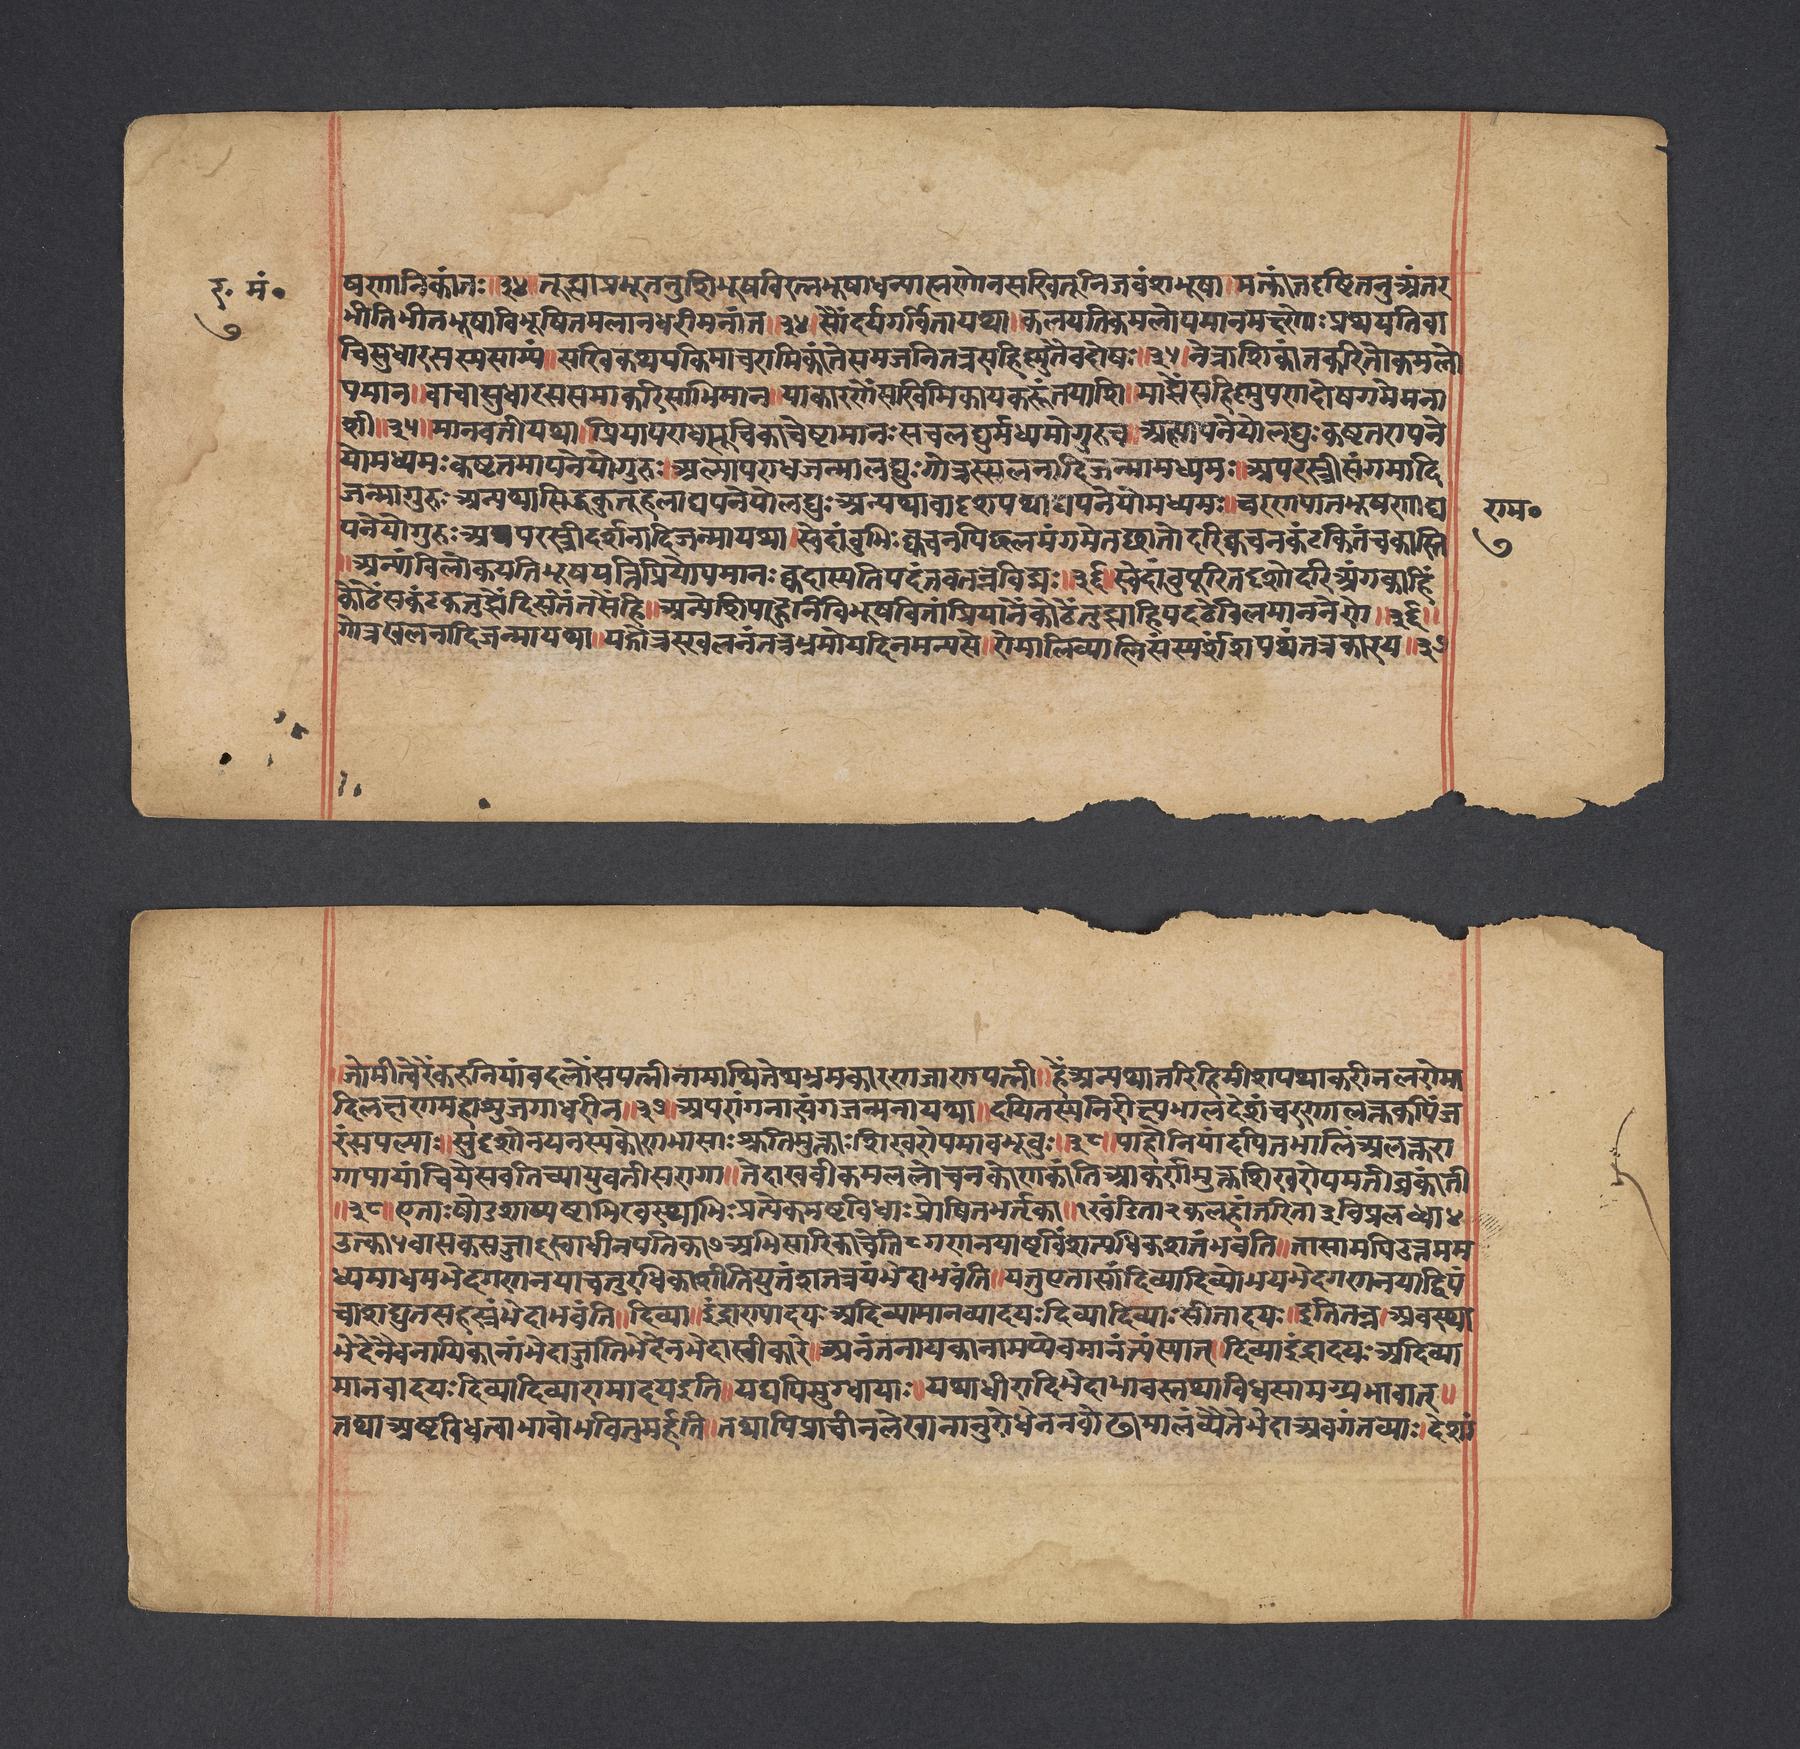 र॰ मं॰
७
षणानिकांतः॥३४॥तूह्याप्रभूततनुशिभूषविरत्नभूषाधन्यात्नगोनसखितूनिजवंशभूषा॥मत्कांतदृष्टितनुअंतर
भीतिभीतभूषाविभूषितमलानधरीमनांत॥३४॥सौंदर्यगर्वितायथा॥कलयतिकमलोपमानमक्ष्णोः प्रथयतिवा
चिसुधारसस्यसाम्यं॥सखिकथयकिमाचरामिकांतेसमजनितत्रसहिष्णुतैवदोषः॥३५॥नेत्राशिकांतकरितोकमलो
पमान॥वाचासुधारससमाकरिसाभिमान॥याकारणेंसखिमिकायकरूंतयाशि॥माझेंसहिष्णुपणदोषगमेमना
शी॥३५॥मानवतीयथा॥प्रियापराधसूचिकाचेष्टामानः सचलघुर्मध्यमोगुरुश्च॥अल्पापनेयोलघुः कष्टतरापने
योमध्यमः कष्टतमापनेयोगुरुः॥अल्पापराधजन्मालघुः गोत्रस्खलनादिजन्मामध्यमः॥अपरस्त्रीसंगमादि
जन्मागुरुः अन्यथासिद्धकुतूहलाद्यपनेयोलघुः अन्यथावादशपथाद्यपनेयोमध्यमः॥चरणपातभूषणाद्य
राम॰
७
पनेयोगुरुः अपरस्त्रीदर्शनादिजन्मायथा॥स्वेदांबुभिः क्वचनपिछलमंगमेतछातोदरिक्वचनकंटकितंचकास्ति
॥अन्यांविलोकयतिभूषयतिप्रियोपमानः क्वदास्यतिपदंतवतन्नविद्मः॥३६॥स्वेदांबुपूरितदृशोदरिअंगकाहिं
कोठेंसकंटकतुझेंदिसतेंतसेंहि॥अन्येशिपाहूनिविभूषवितांप्रियानेकोठेंतुझाहिपदठेविलमाननेणे॥३६॥
गोत्रस्खलनादिजन्मायथा॥यद्गोत्रस्खलनंतत्रभ्रमोयदिनमन्यसे॥रोमालिव्यालिसंस्पर्शशपथंतत्रकारय॥३७
॥जोमीत्वेरेंकरुनियांवदलोंसपत्नीनामाथितेथभ्रमकारणजाणपत्नी॥हेंअन्यथातरिहिमीशपथाकरीनलरोमा
दिलक्षणमहाभुजगाधरीन॥३७॥अपरांगनासंगजन्मनायथा॥दयितस्यनिरीक्ष्यभालदेशंचरणालक्तकपिंज
रंसपत्न्याः॥सुदृशोनयनस्यकोणभासाः श्रुतिमुक्ताः शिखरोपमाबभूवुः॥३८॥पाहोनियांदयितभालिंअलक्तरा
गापायांचियेसवतिच्यायुवतीसरागा॥तेदाखवीकमललोचनकोणकांतिआकर्णमुक्तशिखरोपमतीव्रकांती
॥३८॥एताः षोडशाप्यष्टाभिरवस्थाभिः प्रत्येकमष्टविधाः प्रोषितभर्तृका॥१खंडिता२कलहांतरिता३विप्रलब्धा४
उत्का५वासकसज्जा६स्वाधीनपतिका७अभिसारिकाचेति८गणनयाष्टविंशत्यधिकशतंभवंति॥तासामपिउत्तमम
ध्यमाधमभेदगणनयाचतुरधिकाशीतियुतंशतत्रयंभेदाभवंति॥यत्तुएतासांदिव्यादिव्योभयभेदगणनयाद्विपं
चाशद्युतसहस्रंभेदाभवंति॥दिव्या॥इंद्राण्यादयः अदिव्यामानव्यादयः दिव्यादिव्याः सीतादयः॥इतितन्न॥अवस्था
भेदेनैवनायिकानांभेदाज्जातिभेदेनभेदास्वीकारे॥अनंतनायकानामप्येवमानंत्यंस्यात्॥दिव्याइंद्रादयः अदिव्या
मानवादयः दिव्यादिव्यारामादयइति॥यद्यपिमुग्धायाः॥यथाधीरादिभेदाभावस्तथाविधसामग्र्यभावात्॥
तथाअष्टविधत्वाभावोभवितुमर्हति॥तथापिप्राचीनलेखानानुरोधेननवोढामालंब्यैतेभेदाअवगंतव्याः॥देशां